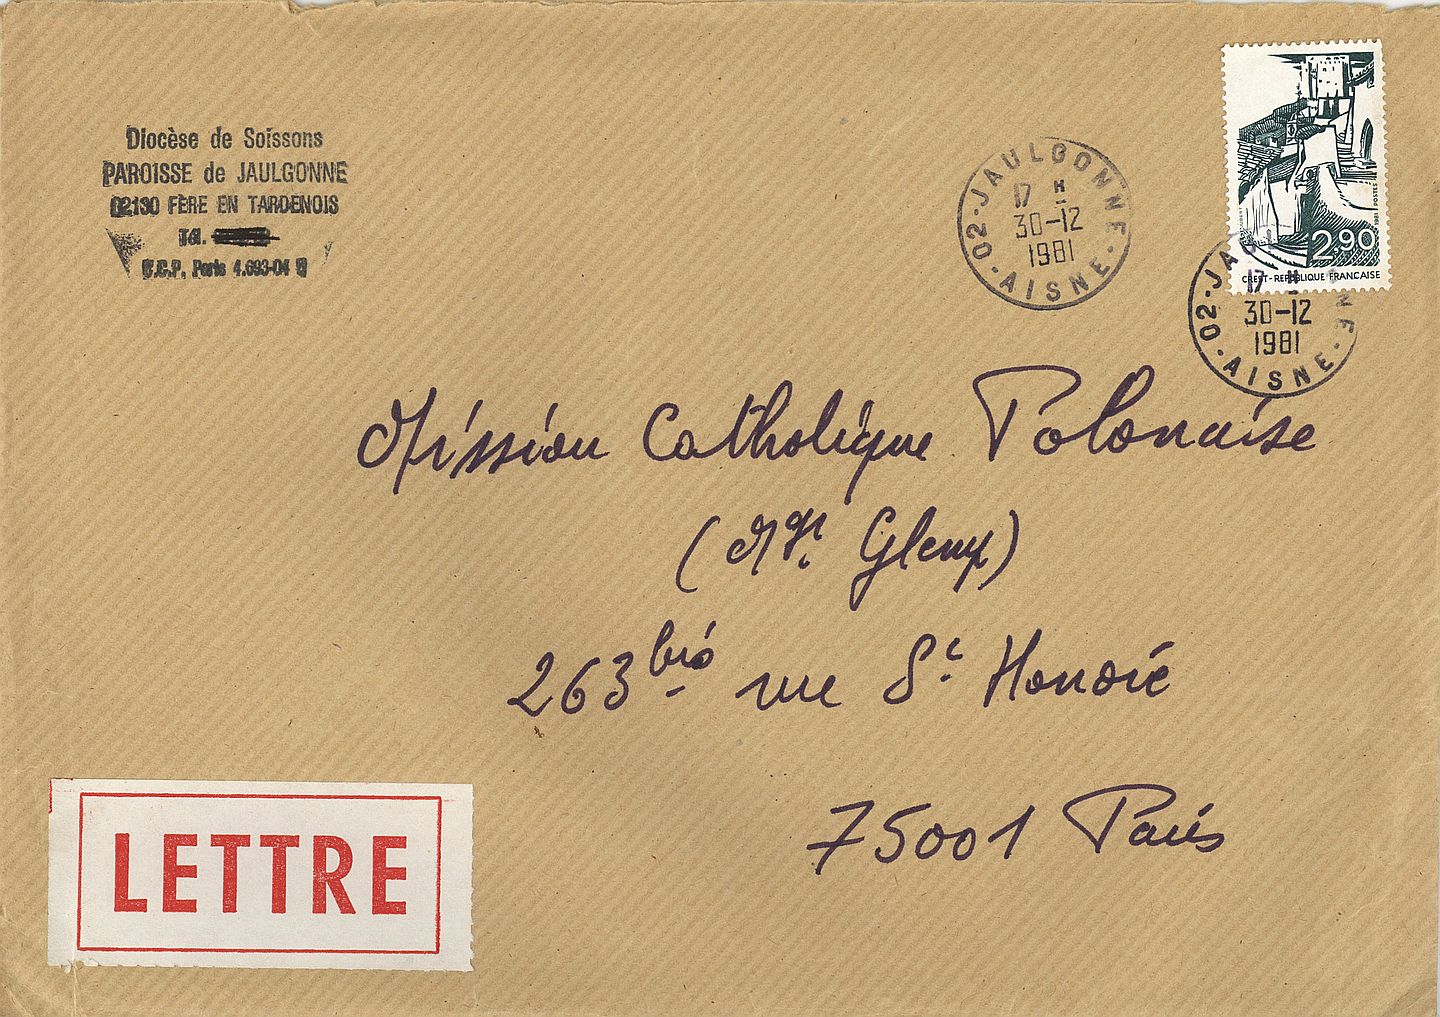 Diocèse de Soissons
PAROISSE de JAULGONNE
02130 FÈRE EN TARDENOIS
Tél.
C.C.P. Paris 4.693-04 U
02-JAULGONNE-AISNE
17 H
30-12
1981
2.90
1981 POSTES
CREST-REPUBLIQUE FRANCAISE
02-JAULGONNE-AISNE
17 H
30-12
1981
Mission Catholique Polonaise
(Mgr. Glemp)
263 bis rue St Honoré
75001 Paris
LETTRE